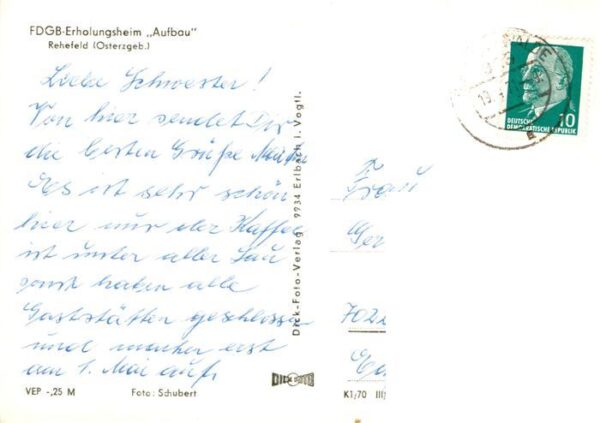 FDGB-Erholungsheim „Aufbau"
Rehefeld (Osterzgeb.)
Liebe Schwester!
Von hier sendet Dir
die besten Grüße
Es ist sehr schön
hier nur der Kaffee
ist unter aller Sau
sonst haben alle
Gaststätten geschlossen
und machen erst
am 1. Mai auf.
VEP -,25 M
Foto: Schubert
Dick-Foto-Verlag 9934 Erlbach i. Vogtl.
DICK FOTO
DEUTSCHE
DEMOKRATISCHE REPUBLIK
10
Frau
Ger
702
K1/70 III/